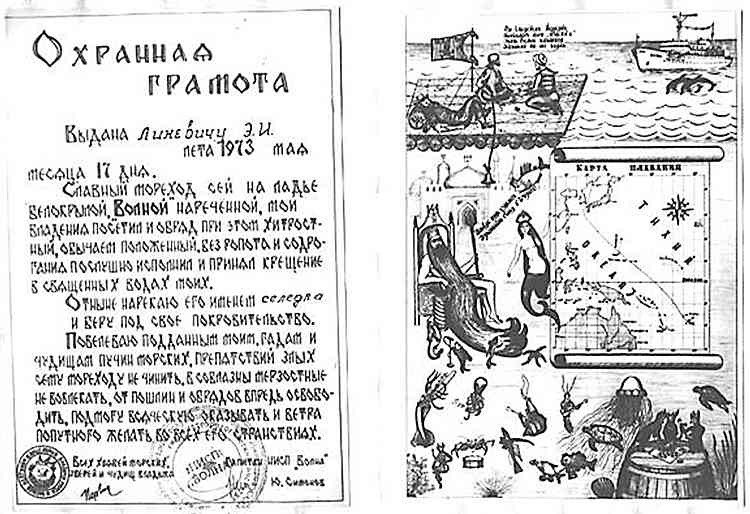 Охранная
грамота
Выдана Линевичу Э.И.
лета 1973 мая
месяца 17 дня.
Славный мореход сей на ладье
белокрылой, Волной нареченной, мои
владения посетил и обряд при этом хитрост-
ный, обычаем положенный, без ропота и содро-
гания послушно исполнил и принял крещение
в священных водах моих.
Отныне нарекаю его именем селедка
и беру под свое покровительство.
Повелеваю подданным моим, гадам и
чудищам пучин морских, препятствий злых
сему мореходу не чинить, в соблазны мерзостные
не вовлекать, от пошлин и обрядов впредь освобо-
дить, подмогу всяческую оказывать и ветра
попутного желать во всех его странствиях.
Всех хлябей морских,
зверей и чудищ
Капитан НИСП "Волна"
Ю. Симонов
Карта плавания
Тихий
океан